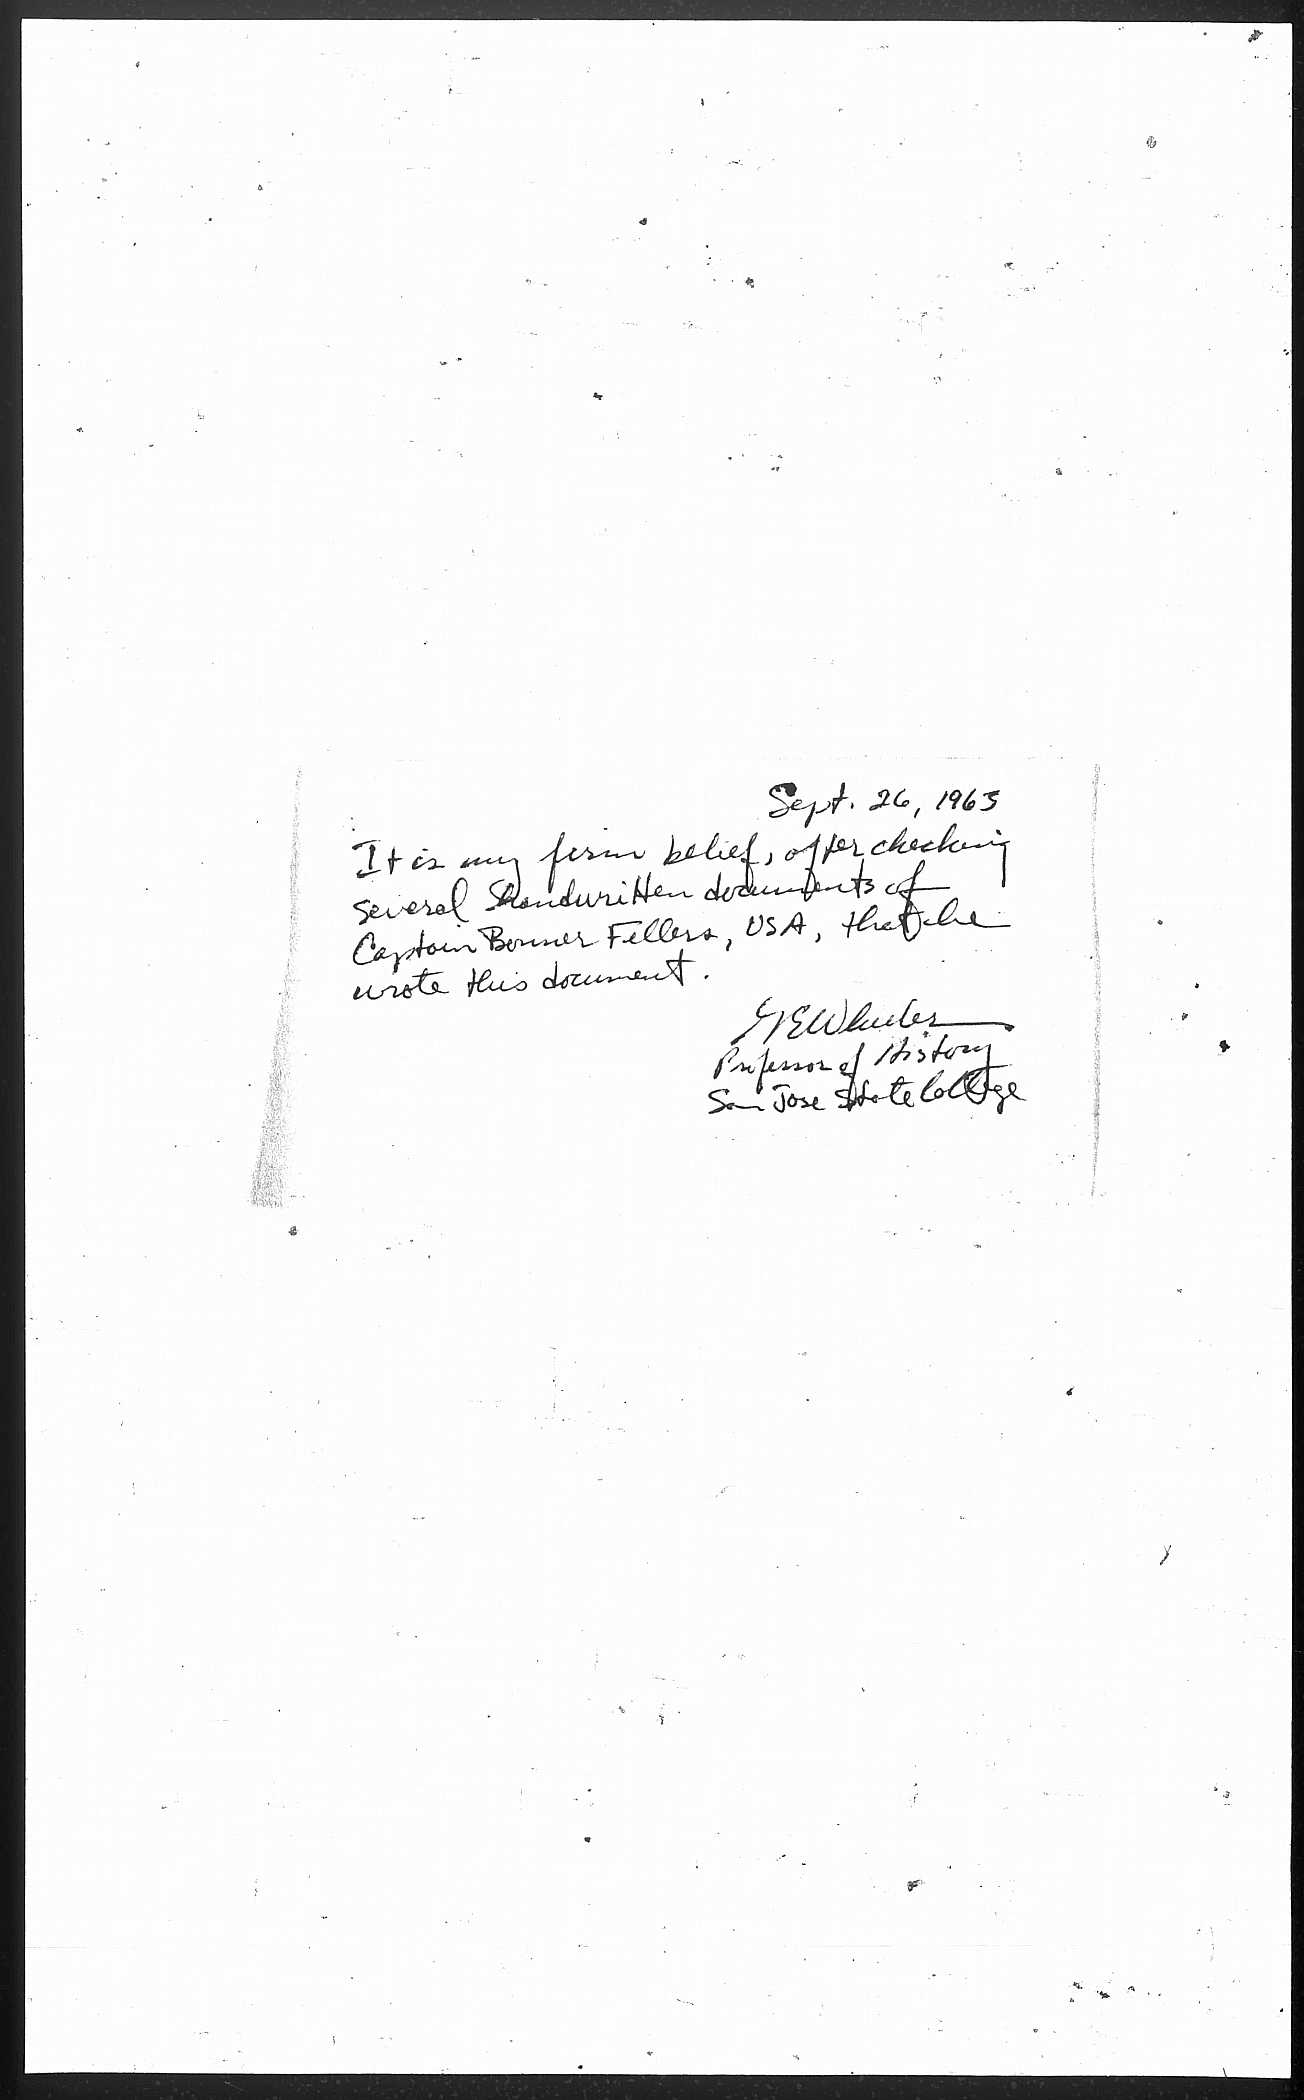 Sept. 26, 1963
It is my firm belief, after checking
several handwritten documents of
Captain Bonner Fellers, USA, that he
wrote this document.
G E Wheeler
Professor of History
San Jose State College